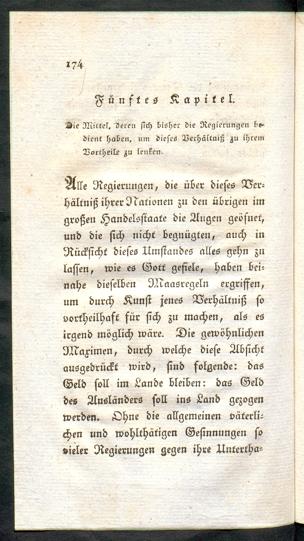 174
Fünftes Kapitel.
Die Mittel, deren sich bisher die Regierungen be-
dient haben, um dieses Verhältniß zu ihrem
Vortheile zu lenken.
Alle Regierungen, die über dieses Ver-
hältniß ihrer Nationen zu den übrigen im
großen Handelsstaate die Augen geöfnet,
und die sich nicht begnügten, auch in
Rücksicht dieses Umstandes alles gehn zu
lassen, wie es Gott gefiele, haben bei-
nahe dieselben Maasregeln ergriffen,
um durch Kunst jenes Verhältniß so
vortheilhaft für sich zu machen, als es
irgend möglich wäre. Die gewöhnlichen
Maximen, durch welche diese Absicht
ausgedrückt wird, sind folgende: das
Geld soll im Lande bleiben: das Geld
des Ausländers soll ins Land gezogen
werden. Ohne die allgemeinen väterli-
chen und wohlthätigen Gesinnungen so
vieler Regierungen gegen ihre Untertha-